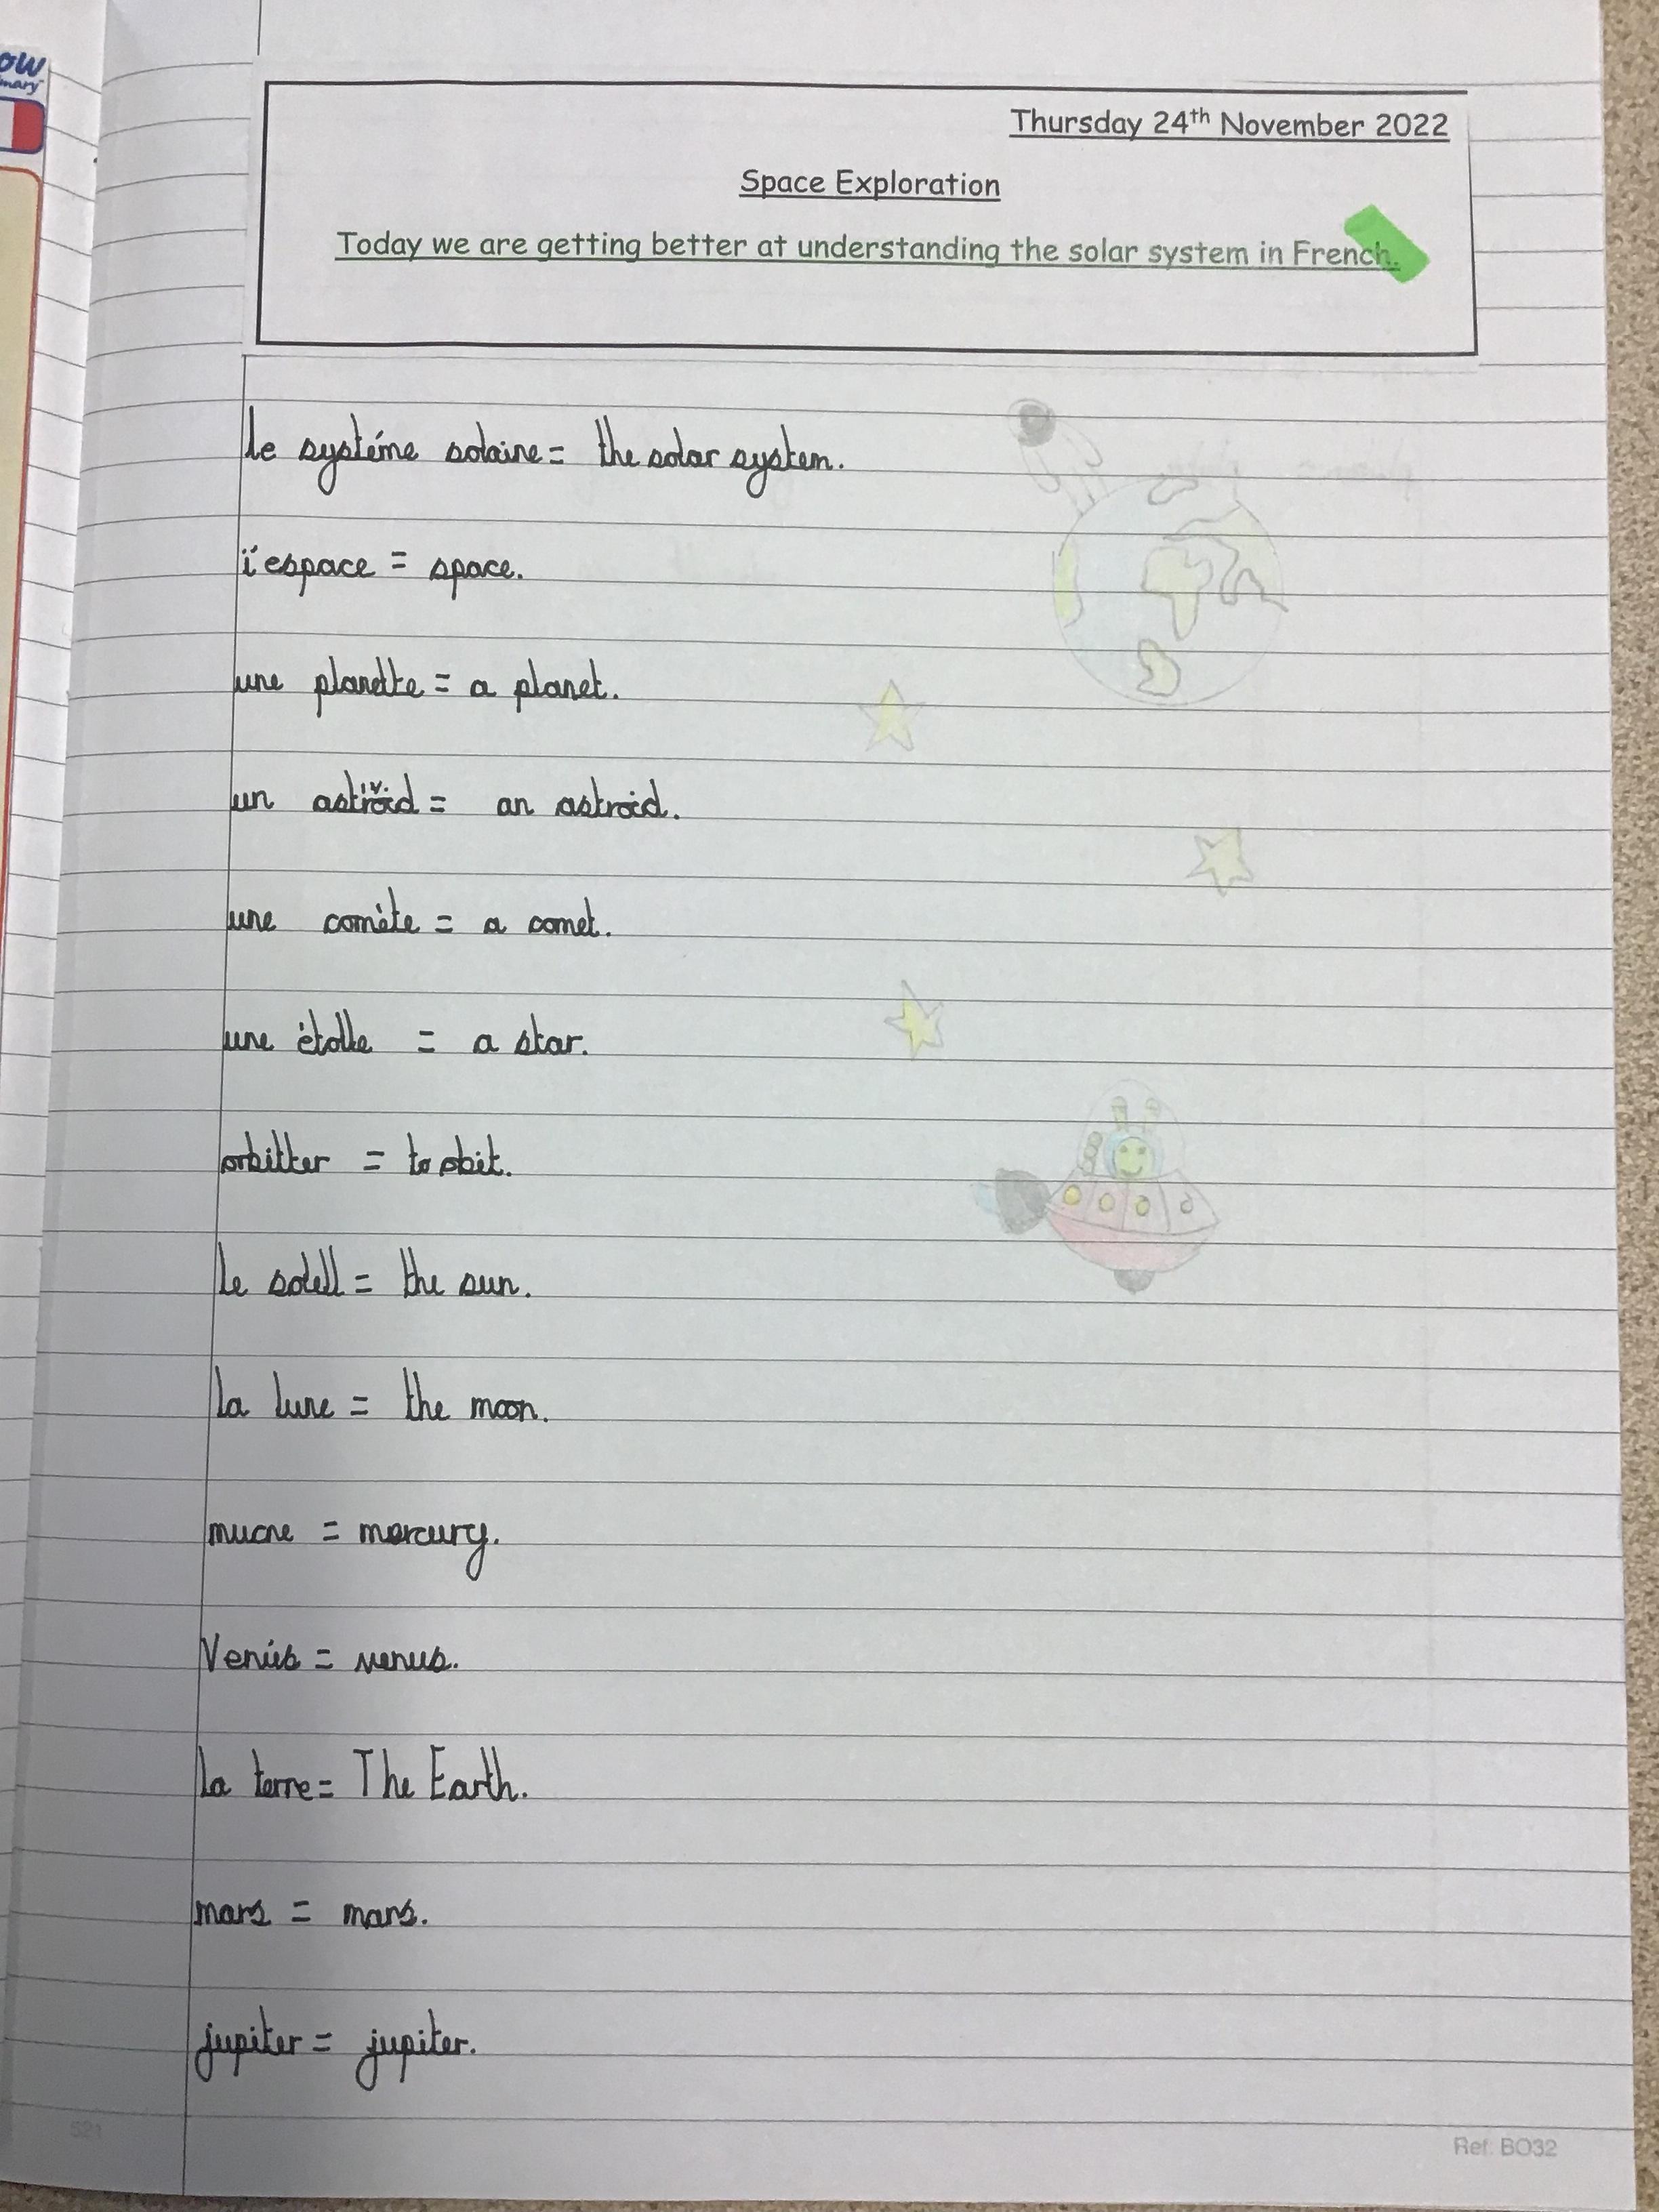 ow
mary
Thursday 24th November 2022
Space Exploration
Today we are getting better at understanding the solar system in French.
le systéme solaire = the solar system.
i'espace = space.
une planette = a planet.
un astiroid = an astroid.
une comète = a comet.
une ètolle = a star.
orbitter = to obit.
le solell = the sun.
la lune = the moon.
mucre = mercury.
Venús = venus.
la terre = The Earth.
mars = mars.
jupiter = jupiter.
521
Ref: BO32